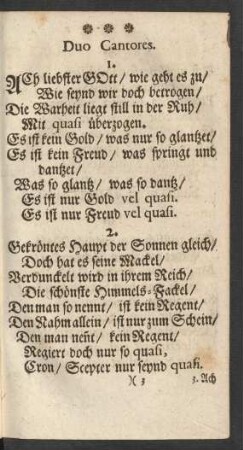 Duo Cantores.
1.
ACh liebster GOtt/ wie geht es zu/
Wie seynd wir doch betrogen/
Die Warheit liegt still in der Ruh/
Mit quasi überzogen.
Es ist kein Gold/ was nur so glantzet/
Es ist kein Freud/ was springt und
dantzet/
Was so glantz/ was so dantz/
Es ist nur Gold vel quasi.
Es ist nur Freud vel quasi.
2.
Gekröntes Haupt der Sonnen gleich/
Doch hat es seine Mackel/
Verdunckelt wird in ihrem Reich/
Die schönste Himmels-Fackel/
Den man so nennt/ ist kein Regent/
Den Nahm allein/ ist nur zum Schein/
Den man neñt/ kein Regent/
Regiert doch nur so quasi,
Cron/ Scepter nur seynd quasi.
)( 3
3. Ach